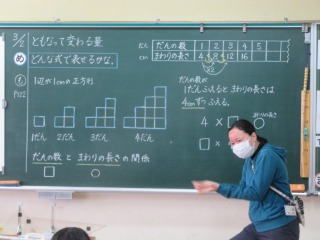 3/2 ともなって変わる量
め どんな式で表せるかな。
1辺が1cmの正方形
1だん 2だん 3だん 4だん
だんの数 と まわりの長さ の関係
□ ○
だんの数 1 2 3 4 5
まわりの長さ 4 8 12 16
だんの数が
1だんふえるとまわりの長さは
4cmずつふえる。
まわりの長さ
4 × □ ○
□ ×